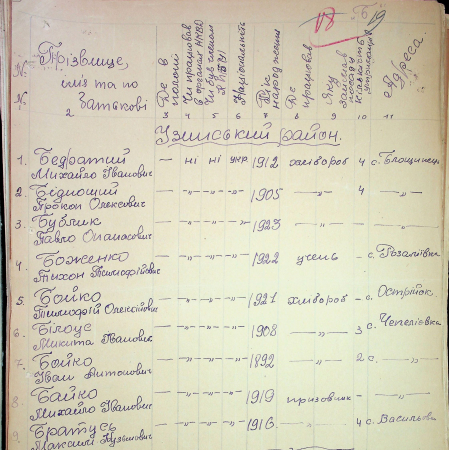 18 19
№ Прізвище, імя та по батькові
Де в полоні
Чи працював в органах НКВД
Чи був членом
Національність
Рік народження
Де працював
Яку займав посаду
Кількість утриманців
Адреса.
2 3 4 5 6 7 8 9 10 11
Узинський район.
1. Бедратий Михайло Іванович — ні ні укр. 1912 хлібороб 4 с.
2. Бедношій Прокоп Олексович — „ „ „ 1905 — „ — 4 — „ —
3. Бублик Павло Опанасович — „ „ „ 1923 — „ — — „ —
4. Боженко Тихон Тимофійович — „ „ „ 1922 учень — с. Розаліївка
5. Бойко Тимофій Олексійович — „ „ „ 1921 хлібороб — с. Острійок.
6. Білоус Микита Павлович — „ „ „ 1908 — „ — 3 с. Чепеліївка
7. Бойко Іван Антонович — „ „ „ 1892 — „ — 2 с. — „ —
8. Бойко Михайло Іванович — „ „ „ 1919 призовник — — „ —
9. Братусь Максим Кузьмович — „ „ „ 1916. — „ — 4 с.